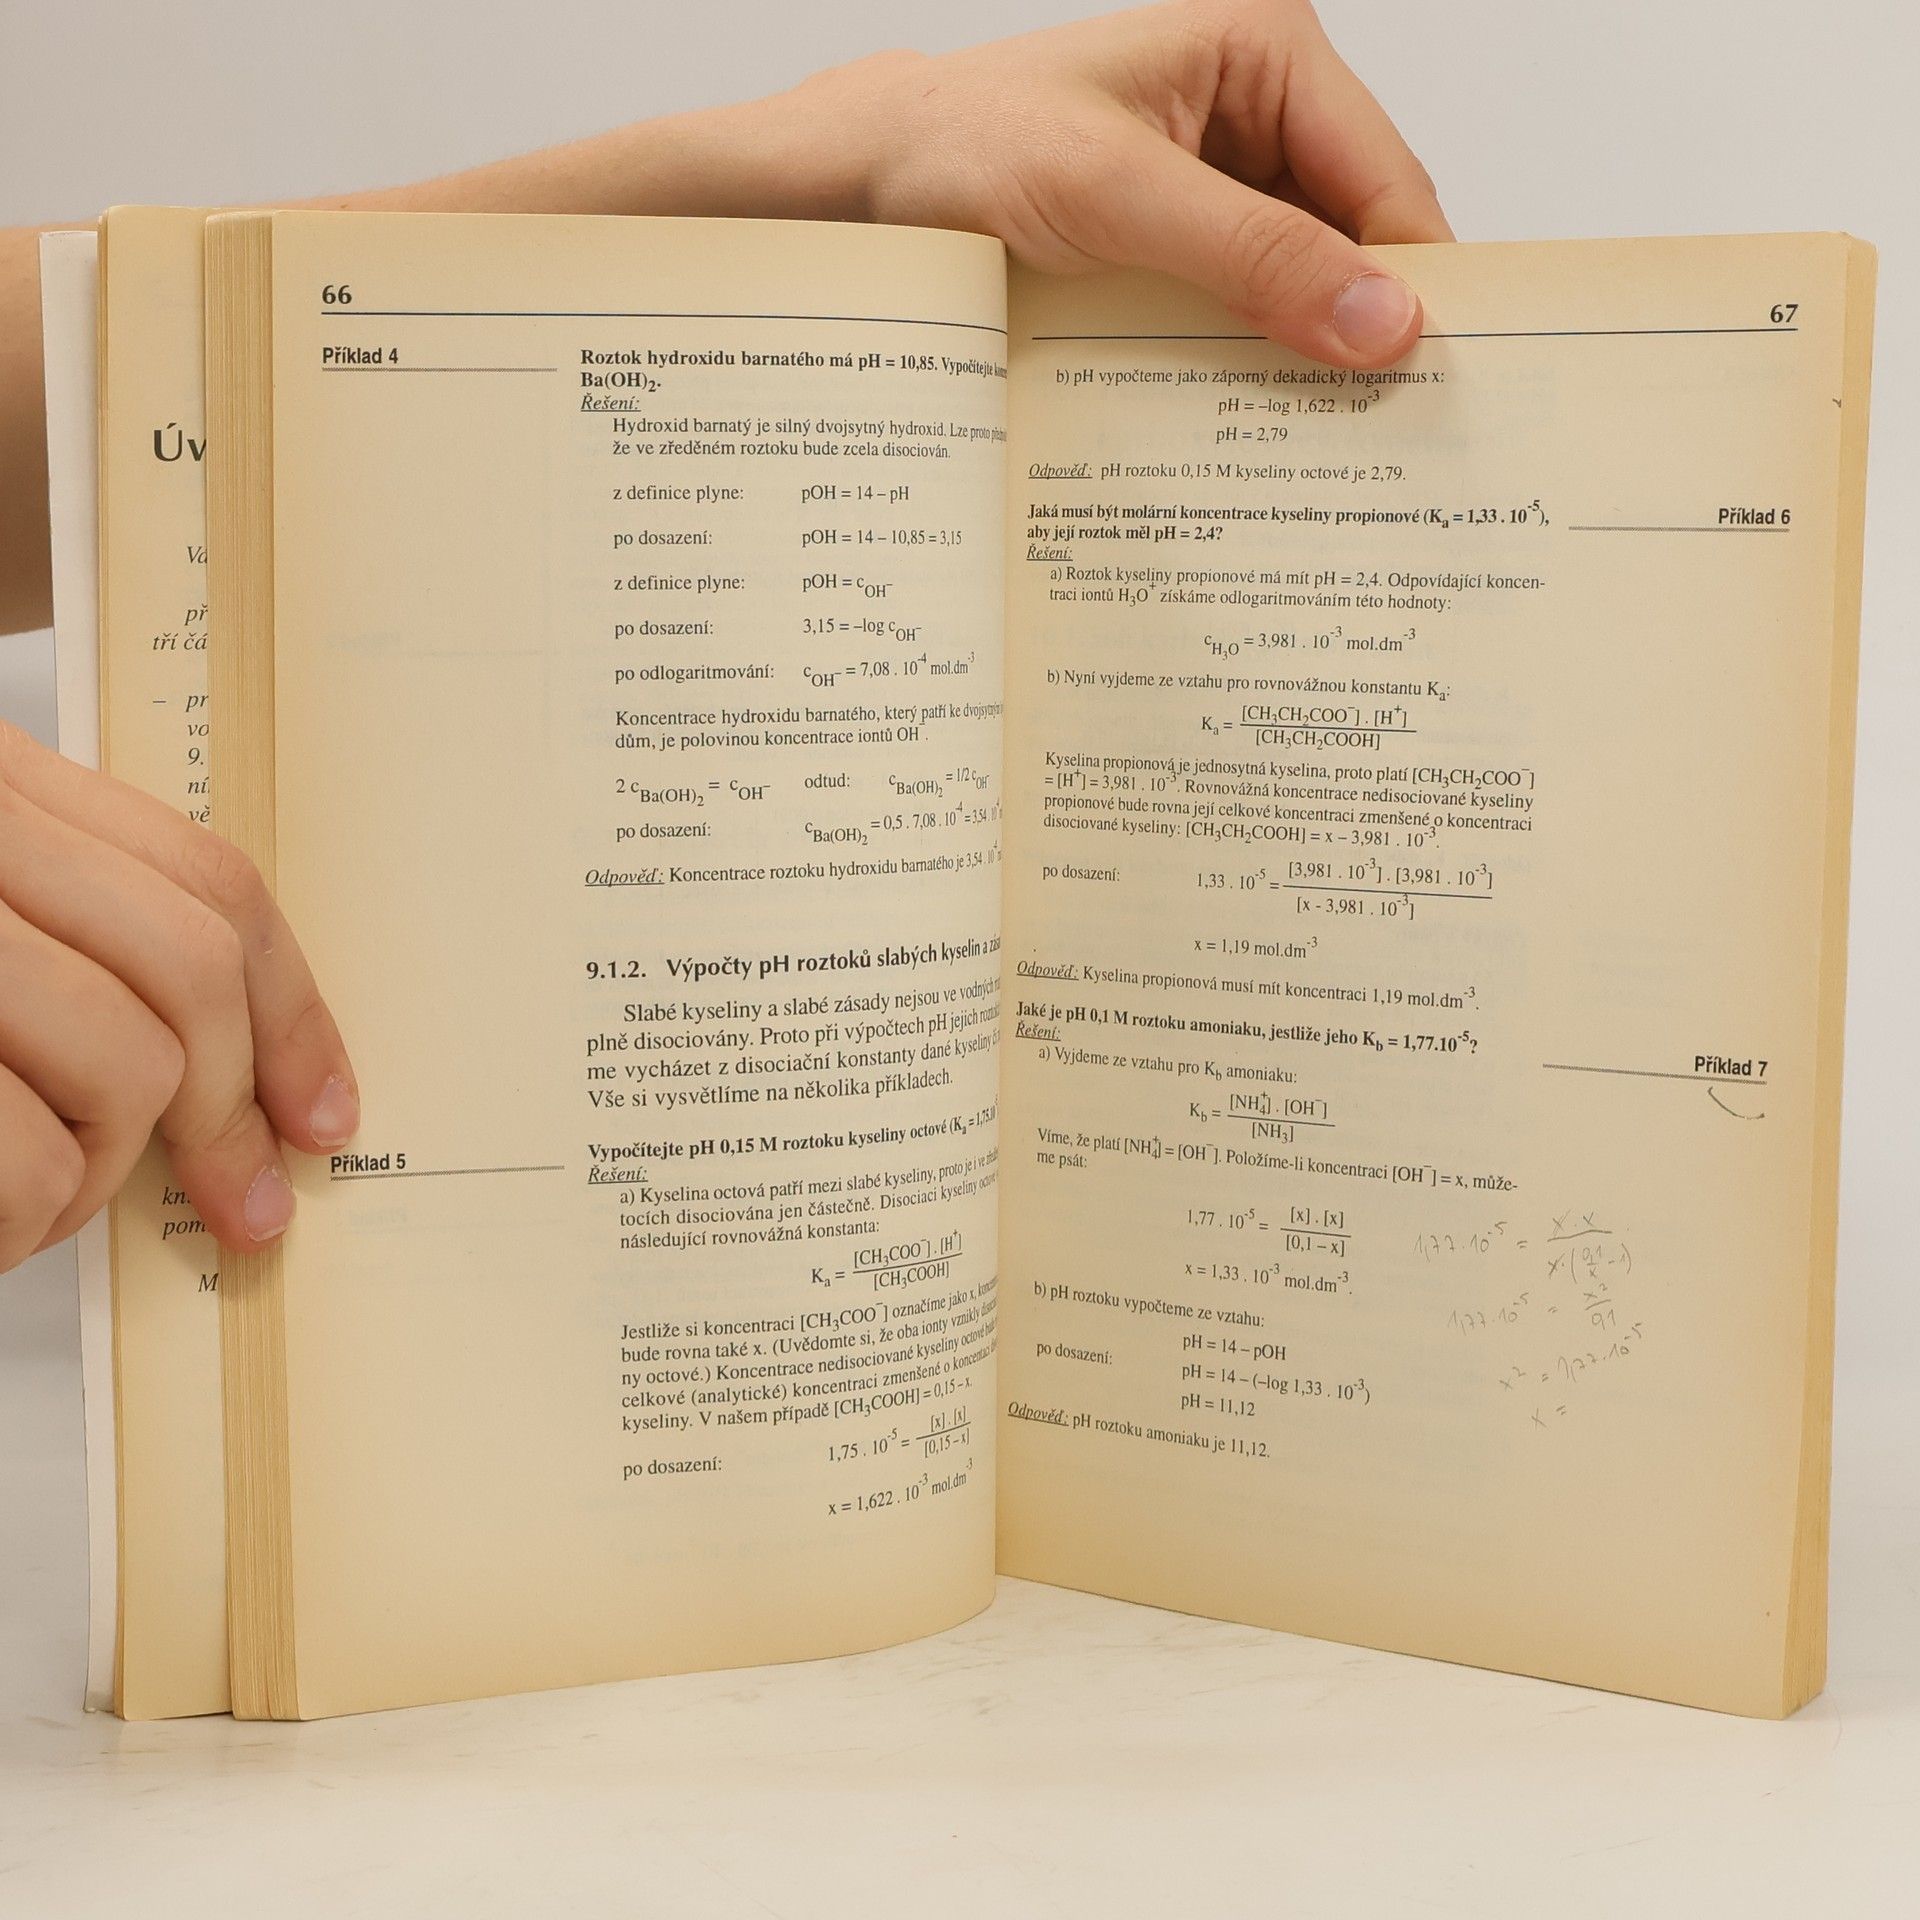 66
Příklad 4
Roztok hydroxidu barnatého má pH = 10,85. Vypočítejte
Ba(OH)₂.
Řešení:
Hydroxid barnatý je silný dvojsytný hydroxid. Lze proto
že ve zředěném roztoku bude zcela disociován.
z definice plyne: pOH = 14 – pH
po dosazení: pOH = 14 – 10,85 = 3,15
z definice plyne: pOH = c_OH⁻
po dosazení: 3,15 = –log c_OH⁻
po odlogaritmování: c_OH⁻ = 7,08 . 10⁻⁴ mol.dm⁻³
Koncentrace hydroxidu barnatého, který patří ke
dům, je polovinou koncentrace iontů OH⁻.
2 c_Ba(OH)₂ = c_OH⁻ odtud: c_Ba(OH)₂ = 1/2 c_OH⁻
po dosazení: c_Ba(OH)₂ = 0,5 . 7,08 . 10⁻⁴ = 3,54 . 10⁻⁴
Odpověď: Koncentrace roztoku hydroxidu barnatého je 3,54 . 10⁻⁴
9.1.2. Výpočty pH roztoků slabých kyselin a
Slabé kyseliny a slabé zásady nejsou ve vodných
plně disociovány. Proto při výpočtech pH jejich
me vycházet z disociační konstanty dané kyseliny
Vše si vysvětlíme na několika příkladech.
Příklad 5
Vypočítejte pH 0,15 M roztoku kyseliny octové (Kₐ = 1,75.10
Řešení:
a) Kyselina octová patří mezi slabé kyseliny, proto je i ve
tocích disociována jen částečně. Disociaci kyseliny
následující rovnovážná konstanta:
Kₐ = [CH₃COO⁻] . [H⁺] / [CH₃COOH]
Jestliže si koncentraci [CH₃COO⁻] označíme jako x,
bude rovna také x. (Uvědomte si, že oba ionty vznikly
ny octové.) Koncentrace nedisociované kyseliny octové
celkové (analytické) koncentraci zmenšené o koncentraci
kyseliny. V našem případě [CH₃COOH] = 0,15 – x.
po dosazení: 1,75 . 10⁻⁵ = [x] . [x] / [0,15 – x]
x = 1,622 . 10⁻³ mol.dm⁻³
67
b) pH vypočteme jako záporný dekadický logaritmus x:
pH = –log 1,622 . 10⁻³
pH = 2,79
Odpověď: pH roztoku 0,15 M kyseliny octové je 2,79.
Příklad 6
Jaká musí být molární koncentrace kyseliny propionové (Kₐ = 1,33 . 10⁻⁵),
aby její roztok měl pH = 2,4?
Řešení:
a) Roztok kyseliny propionové má mít pH = 2,4. Odpovídající koncen-
traci iontů H₃O⁺ získáme odlogaritmováním této hodnoty:
c_H₃O = 3,981 . 10⁻³ mol.dm⁻³
b) Nyní vyjdeme ze vztahu pro rovnovážnou konstantu Kₐ:
Kₐ = [CH₃CH₂COO⁻] . [H⁺] / [CH₃CH₂COOH]
Kyselina propionová je jednosytná kyselina, proto platí [CH₃CH₂COO⁻]
= [H⁺] = 3,981 . 10⁻³. Rovnovážná koncentrace nedisociované kyseliny
propionové bude rovna její celkové koncentraci zmenšené o koncentraci
disociované kyseliny: [CH₃CH₂COOH] = x – 3,981 . 10⁻³.
po dosazení: 1,33 . 10⁻⁵ = [3,981 . 10⁻³] . [3,981 . 10⁻³] / [x - 3,981 . 10⁻³]
x = 1,19 mol.dm⁻³
Odpověď: Kyselina propionová musí mít koncentraci 1,19 mol.dm⁻³.
Příklad 7
Jaké je pH 0,1 M roztoku amoniaku, jestliže jeho K_b = 1,77.10⁻⁵?
Řešení:
a) Vyjdeme ze vztahu pro K_b amoniaku:
K_b = [NH₄⁺] . [OH⁻] / [NH₃]
Víme, že platí [NH₄⁺] = [OH⁻]. Položíme-li koncentraci [OH⁻] = x, může-
me psát:
1,77 . 10⁻⁵ = [x] . [x] / [0,1 – x]
x = 1,33 . 10⁻³ mol.dm⁻³.
b) pH roztoku vypočteme ze vztahu:
pH = 14 – pOH
po dosazení: pH = 14 – (–log 1,33 . 10⁻³)
pH = 11,12
Odpověď: pH roztoku amoniaku je 11,12.
1,77.10⁻⁵ = x.x / x.(0,1/x - 1)
1,77.10⁻⁵ = x² / 0,1
x² = 1,77.10⁻⁵
x =
Úv
př
tří čá
– pr
vo
9.
ní
vě
kn
pom
M